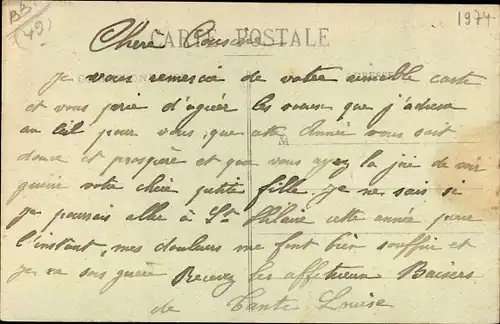 BB
(49)
1974
CARTE POSTALE
Chère Cousine
Je vous remercie de votre aimable carte
et vous prie d'agréer les voeux que j'adresse
au Ciel pour vous, que cette Année vous soit
douce et prospère et que vous ayez la joie de voir
guérie votre chère petite fille. Je ne sais si
je pourais aller à St Hilaire cette année pour
l'instant, mes douleurs me font bien souffrir et
je ne sors guère Recevez les affectueux Baisers
de Tante Louise